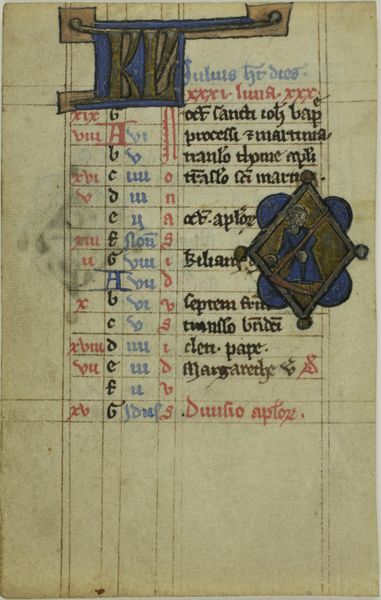 KL Iulius ht dies
xxxi. luna. xxx.
xix G Oct sancti ioh bape
viii A vi processi & martinia
b v translo thome apli
xvi c iiii o trslo sci martin
v d iii n
e ii a oct aplor
xiii f Non s
ii G viii i Kilian
A vii d
x b vi v septem frm
c v s translo bndicti
xviii d iiii i cleti pape.
vii e iii d Margarethe v
f ii v
xv G Idus s Divisio aplor.